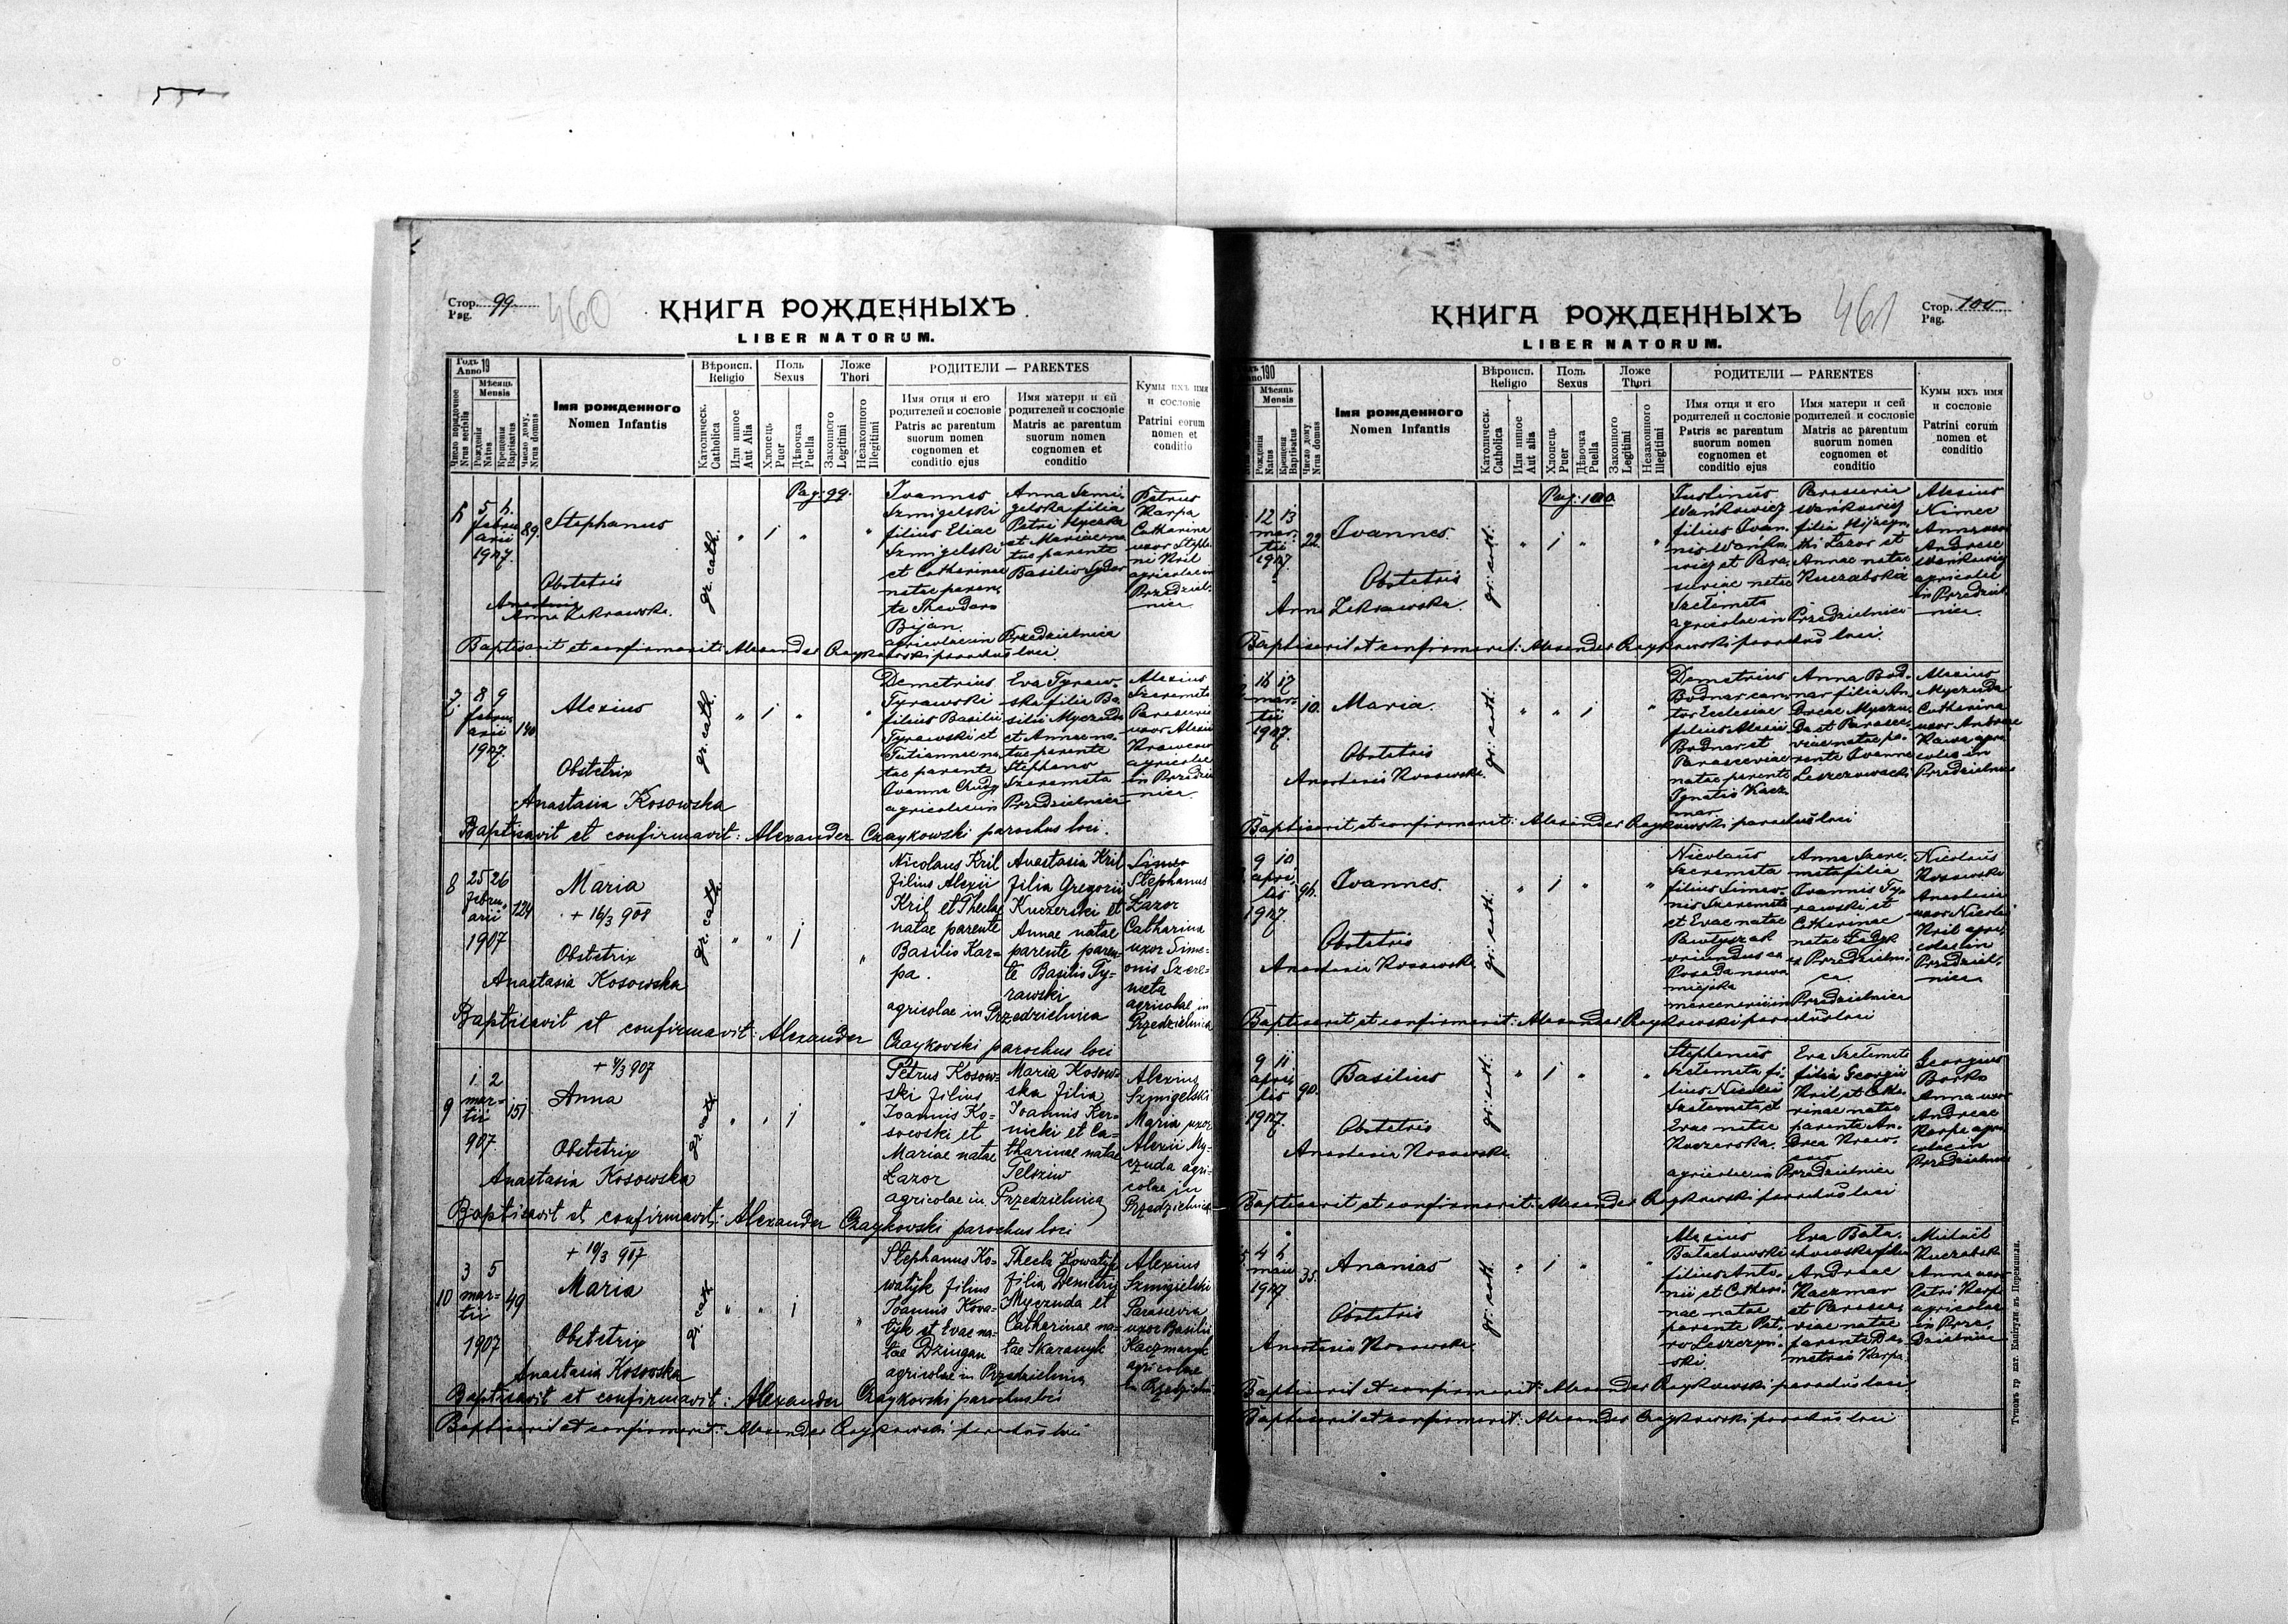 Стор. 99
Pag.
460
КНИГА РОЖДЕННЫХЪ
LIBER NATORUM.
Годъ 19
Anno
Мѣсяць
Mensis
Число порядочное
Nrus serialis
Рожденія
Natus
Крещенія
Baptisatus
Число дому.
Nrus domus
Імя рожденного
Nomen Infantis
Вѣроисп.
Religio
Католическ.
Catholica
Или иное
Aut Alia
Поль
Sexus
Хлопець
Puer
Дѣвочка
Puella
Ложе
Thori
Законного
Legitimi
Незаконного
Illegitimi
РОДИТЕЛИ — PARENTES
Имя отця и его
родителей и сословіе
Patris ac parentum
suorum nomen
cognomen et
conditio ejus
Имя матери и ей
родителей и сословіе
Matris ac parentum
suorum nomen
cognomen et
conditio
Кумы ихъ имя
и сословіе
Patrini eorum
nomen et
conditio
Pag: 99.
5
februarii
1907.
89.
Stephanus
gr. cath.
Obstetrix
Anna
Ioannes
Szmigelski
filius Eliae
Szmigelski
et Catharinae
natae paren-
te Theodoro
Bijan.
agricolae in Przedzielnica
Anna Szmi-
gelska filia
Petri
et Mariae na-
tae parente
Basilio
Petrus
Karpa
Catharina
uxor Stepha-
ni Kril
agricolae in
Przedziel-
nica
Baptisavit et confirmavit: Alexander Czaykowski parochus loci.
7.
8 9
februarii
1907.
140
Alexius
gr. cath.
Obstetrix
Anastasia Kosowska
Demetrius
Tyrawski
filius Basilii
Tyrawski et
Tatiannae na-
tae parente
Ioanne
agricolae in Przedzielnica
Eva Tyraw-
ska filia Ba-
silii Myczuda
et Annae na-
tae parente
Stephano
Szeremeta
Alexius
Szeremeta
Parascevia
uxor Alexii
agricolae
in Przedziel-
nica.
Baptisavit et confirmavit: Alexander Czaykowski parochus loci.
8
25 26
febru-
arii
1907
124
Maria
+ 16/3 908
gr. cath.
Obstetrix
Anastasia Kosowska
Nicolaus Kril
filius Alexii
Kril et Theclae
natae parente
Basilio Kar-
pa.
agricolae in Przedzielnica
Anastasia Kril
filia Gregorii
Kuczerski et
Annae natae
parente paren-
te Basilio Ty-
rawski
Stephanus
Lazor
Catharina
uxor Sime-
onis Szere-
meta
agricolae in
Przedzielnica
Baptisavit et confirmavit: Alexander Czaykowski parochus loci
9
1. 2
mar-
tii
907.
151
+ 4/3 907
Anna
gr. cath.
Obstetrix
Anastasia Kosowska
Petrus Kosow-
ski filius
Ioannis Ko-
sowski et
Mariae natae
Lazor
agricolae in Przedzielnica
Maria Kosow-
ska filia
Ioannis Ker-
nicki et Ca-
tharinae natae
Alexius
Szmigelski
Maria uxor
Alexii My-
czuda agri-
colae in
Przedzielnica
Baptisavit et confirmavit: Alexander Czaykowski parochus loci
10
3 5
mar-
tii
1907
49
+ 19/3 907
Maria
gr. cath.
Obstetrix
Anastasia Kosowska
Stephanus Ko-
watyk filius
Ioannis Kowa-
tyk et Evae na-
tae Dziugan
agricolae in Przedzielnica
Thecla Kowatyk
filia Demetrii
Myczuda et
Catharinae na-
tae Skaranyk
Alexius
Szmigielski
Parascevia
uxor Basilii
Kaczmaryk
agricolae
in
Baptisavit et confirmavit: Alexander Czaykowski parochus loci
Baptisavit et confirmavit: Alexander Czaykowski parochus loci
КНИГА РОЖДЕННЫХЪ
LIBER NATORUM.
461
Стор. 100
Pag.
190
Мѣсяць
Mensis
Рожденія
Natus
Крещенія
Baptisatus
Число дому
Nrus domus
Імя рожденного
Nomen Infantis
Вѣроисп.
Religio
Католическ.
Catholica
Или иное
Aut alia
Поль
Sexus
Хлопець
Puer
Дѣвочка
Puella
Ложе
Thori
Законного
Legitimi
Незаконного
Illegitimi
РОДИТЕЛИ — PARENTES
Имя отця и его
родителей и сословіе
Patris ac parentum
suorum nomen
cognomen et
conditio ejus
Имя матери и сей
родителей и сословіе
Matris ac parentum
suorum nomen
cognomen et
conditio
Кумы ихъ имя
и сословіе
Patrini eorum
nomen et
conditio
Pag: 100
12 13
mar-
tii
1907.
22.
Ioannes.
gr. cath.
Obstetrix
Anna
Iustinus
Wańkowicz
filius Ioan-
nis Wańko-
wicz et Para-
sceviae natae
agricolae in Przedzielnica
Parascevia
Wańkowicz
filia
Lazor et
Annae natae
Alexius
Nimec
Anna uxor
Andreae
Wańkowicz
agricolae
in Przedziel-
nica.
Baptisavit et confirmavit: Alexander Czaykowski parochus loci.
16 17
mar-
tii
1907.
10.
Maria.
gr. cath.
Obstetrix
Anastasia Kosowska.
Demetrius
Bodnar can-
tor Ecclesiae
filius Alexii
Bodnar et
Parasceviae
natae parente
Ignatio Kacz-
mar
Anna Bod-
nar filia An-
dreae Myczu-
da et Parasce-
viae natae pa-
rente Ioanne
Alexius
Myczuda
Catharina
uxor Andreae
agri-
colae in
Przedzielnica
Baptisavit et confirmavit: Alexander Czaykowski parochus loci
9 10
apri-
lis
1907.
96.
Ioannes.
gr. cath.
Obstetrix
Anastasia Kosowska
Nicolaus
Szeremeta
filius Simeo-
nis Szeremeta
et Evae natae
oriundus ex
Posada nowo
miejska
Anna Szere-
meta filia
Ioannis Ty-
rawski et
Catharinae
natae
ex Przedzielni-
ca
Przedzielnica
Nicolaus
Kosowski
Anastasia
uxor Nicolai
Kril agri-
colae in
Przedziel-
nica
Baptisavit et confirmavit: Alexander Czaykowski parochus loci
9 11
apri-
lis
1907.
90.
Basilius
gr. cath.
Obstetrix
Anastasia Kosowska
Stephanus
fi-
lius Nicolai
et
Evae natae
Kuczerska.
agricolae in Przedzielnica
Eva
filia Georgii
Kril et Ctha-
rinae natae
parente An-
drea
Georgius
Borko
Anna uxor
Andreae
Karpa agri-
colae in
Przedzielnica
Baptisavit et confirmavit: Alexander Czaykowski parochus loci
4 6
maii
1907
35.
Ananias
gr. cath.
Obstetrix
Anastasia Kosowska.
Alexius
filius Anto-
nii et Cathari-
nae natae
parente Pet-
ro Leszczyń-
ski.
Eva
filia
Andreae
Kaczmar
et Parasce-
viae natae
parente De-
metrio Karpa.
Michaël
Anna uxor
Petri Karpa
agricolae
in Prze-
dzielnica
Baptisavit et confirmavit: Alexander Czaykowski parochus loci.
Baptisavit et confirmavit: Alexander Czaykowski parochus loci